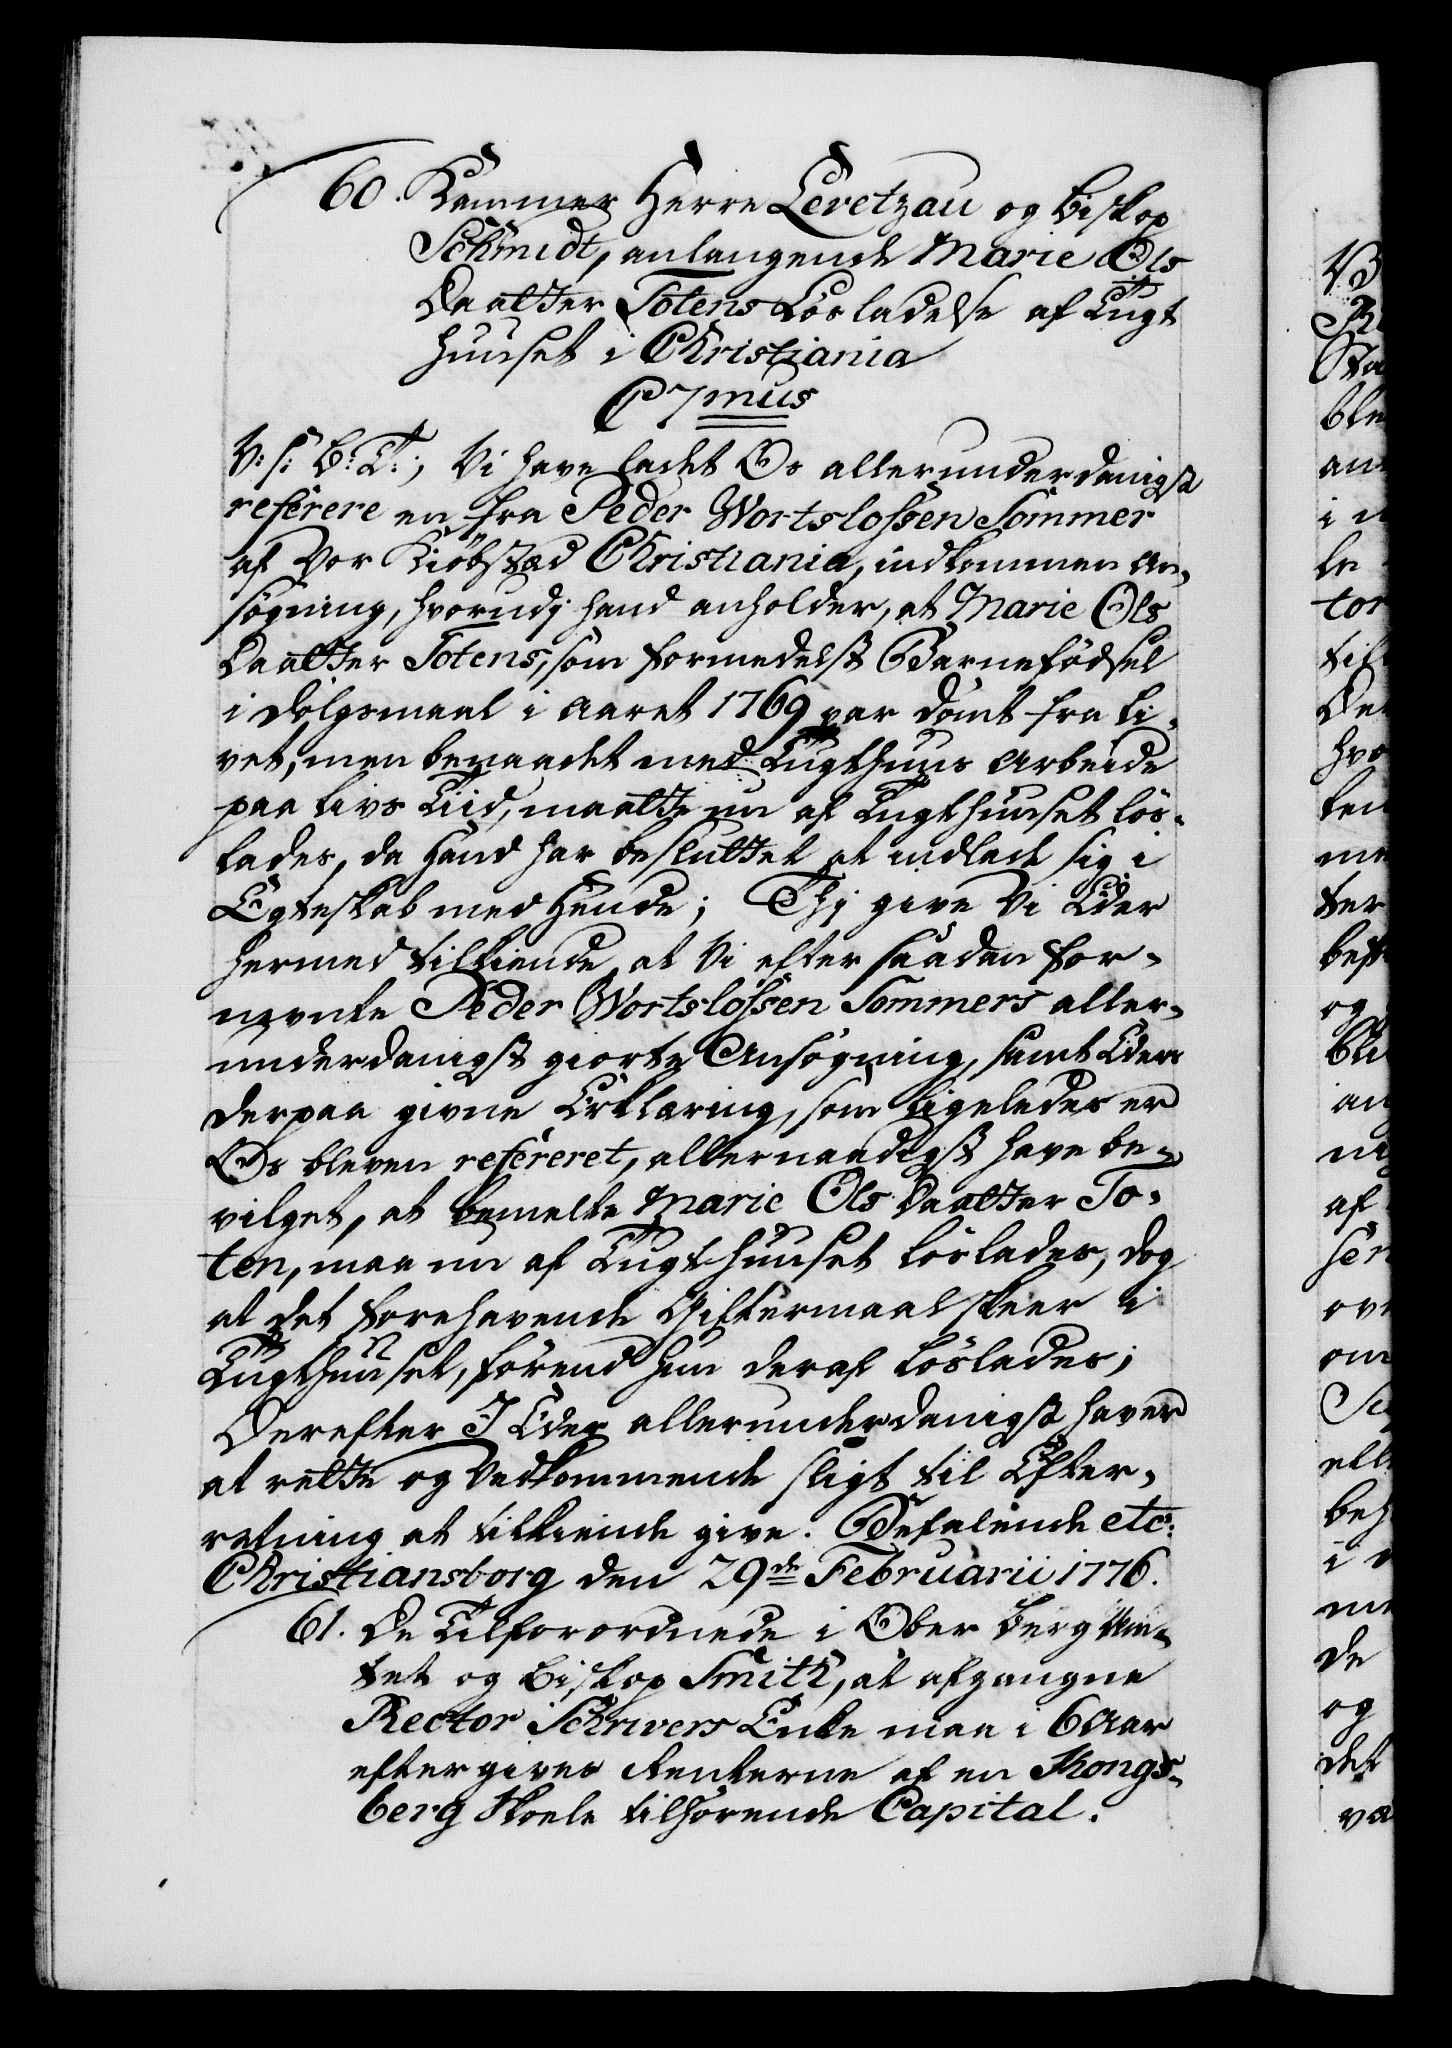 60. Kammer Herre Levetzau og Biskop
Schmidt, anlangende Marie Ols
Daatter Totens Løsladelse af Tugt
Huuset i Christiania
C 7mus
V: s: B: T:, Vi have ladet Os allerunderdanigst
referere en fra Peder Wortslossen Sommer
af Vor Kiøbstæd Christiania, indkommen An-
søgning, hvorudj hand anholder, at Marie Ols
Daatter Totens, som formedelst Barnefødsel
i Dølgsmaal i Aaret 1769 var dømt fra Li-
vet, men benaadet med Tugthuus Arbeide
paa Livs Tiid, maatte nu af Tugthuuset løs-
lades, da Hand har besluttet at indlade sig i
Egteskab med Hende; Thj give Vi Eder
hermed tilkiende, at Vi efter saadan for-
nevnte Peder Wortslossen Sommers aller-
underdanigst giorte Ansøgning, samt Eders
derpaa givne Erklæring, som ligeledes er
Os bleven refereret, allernaadigst have be-
vilget, at bemelte Marie Ols Daatter To-
ten, maa nu af Tugthuuset løslades, dog
at det forehavende Giftermaal skeer i
Tugthuuset, førend hun deraf løslades;
Derefter I Eder allerunderdanigst haver
at rette og Vedkommende sligt til Efter-
retning at tilkiende give. Befalende etc:
Christiansborg den 29de Februarii 1776.
61. De Tilforordnede i Ober Berg Am-
tet og Biskop Smith, at afgangne
Rector Schrivers Enke maa i 6 Aar
eftergives Renterne af en Kongs-
berg Skole tilhørende Capital.